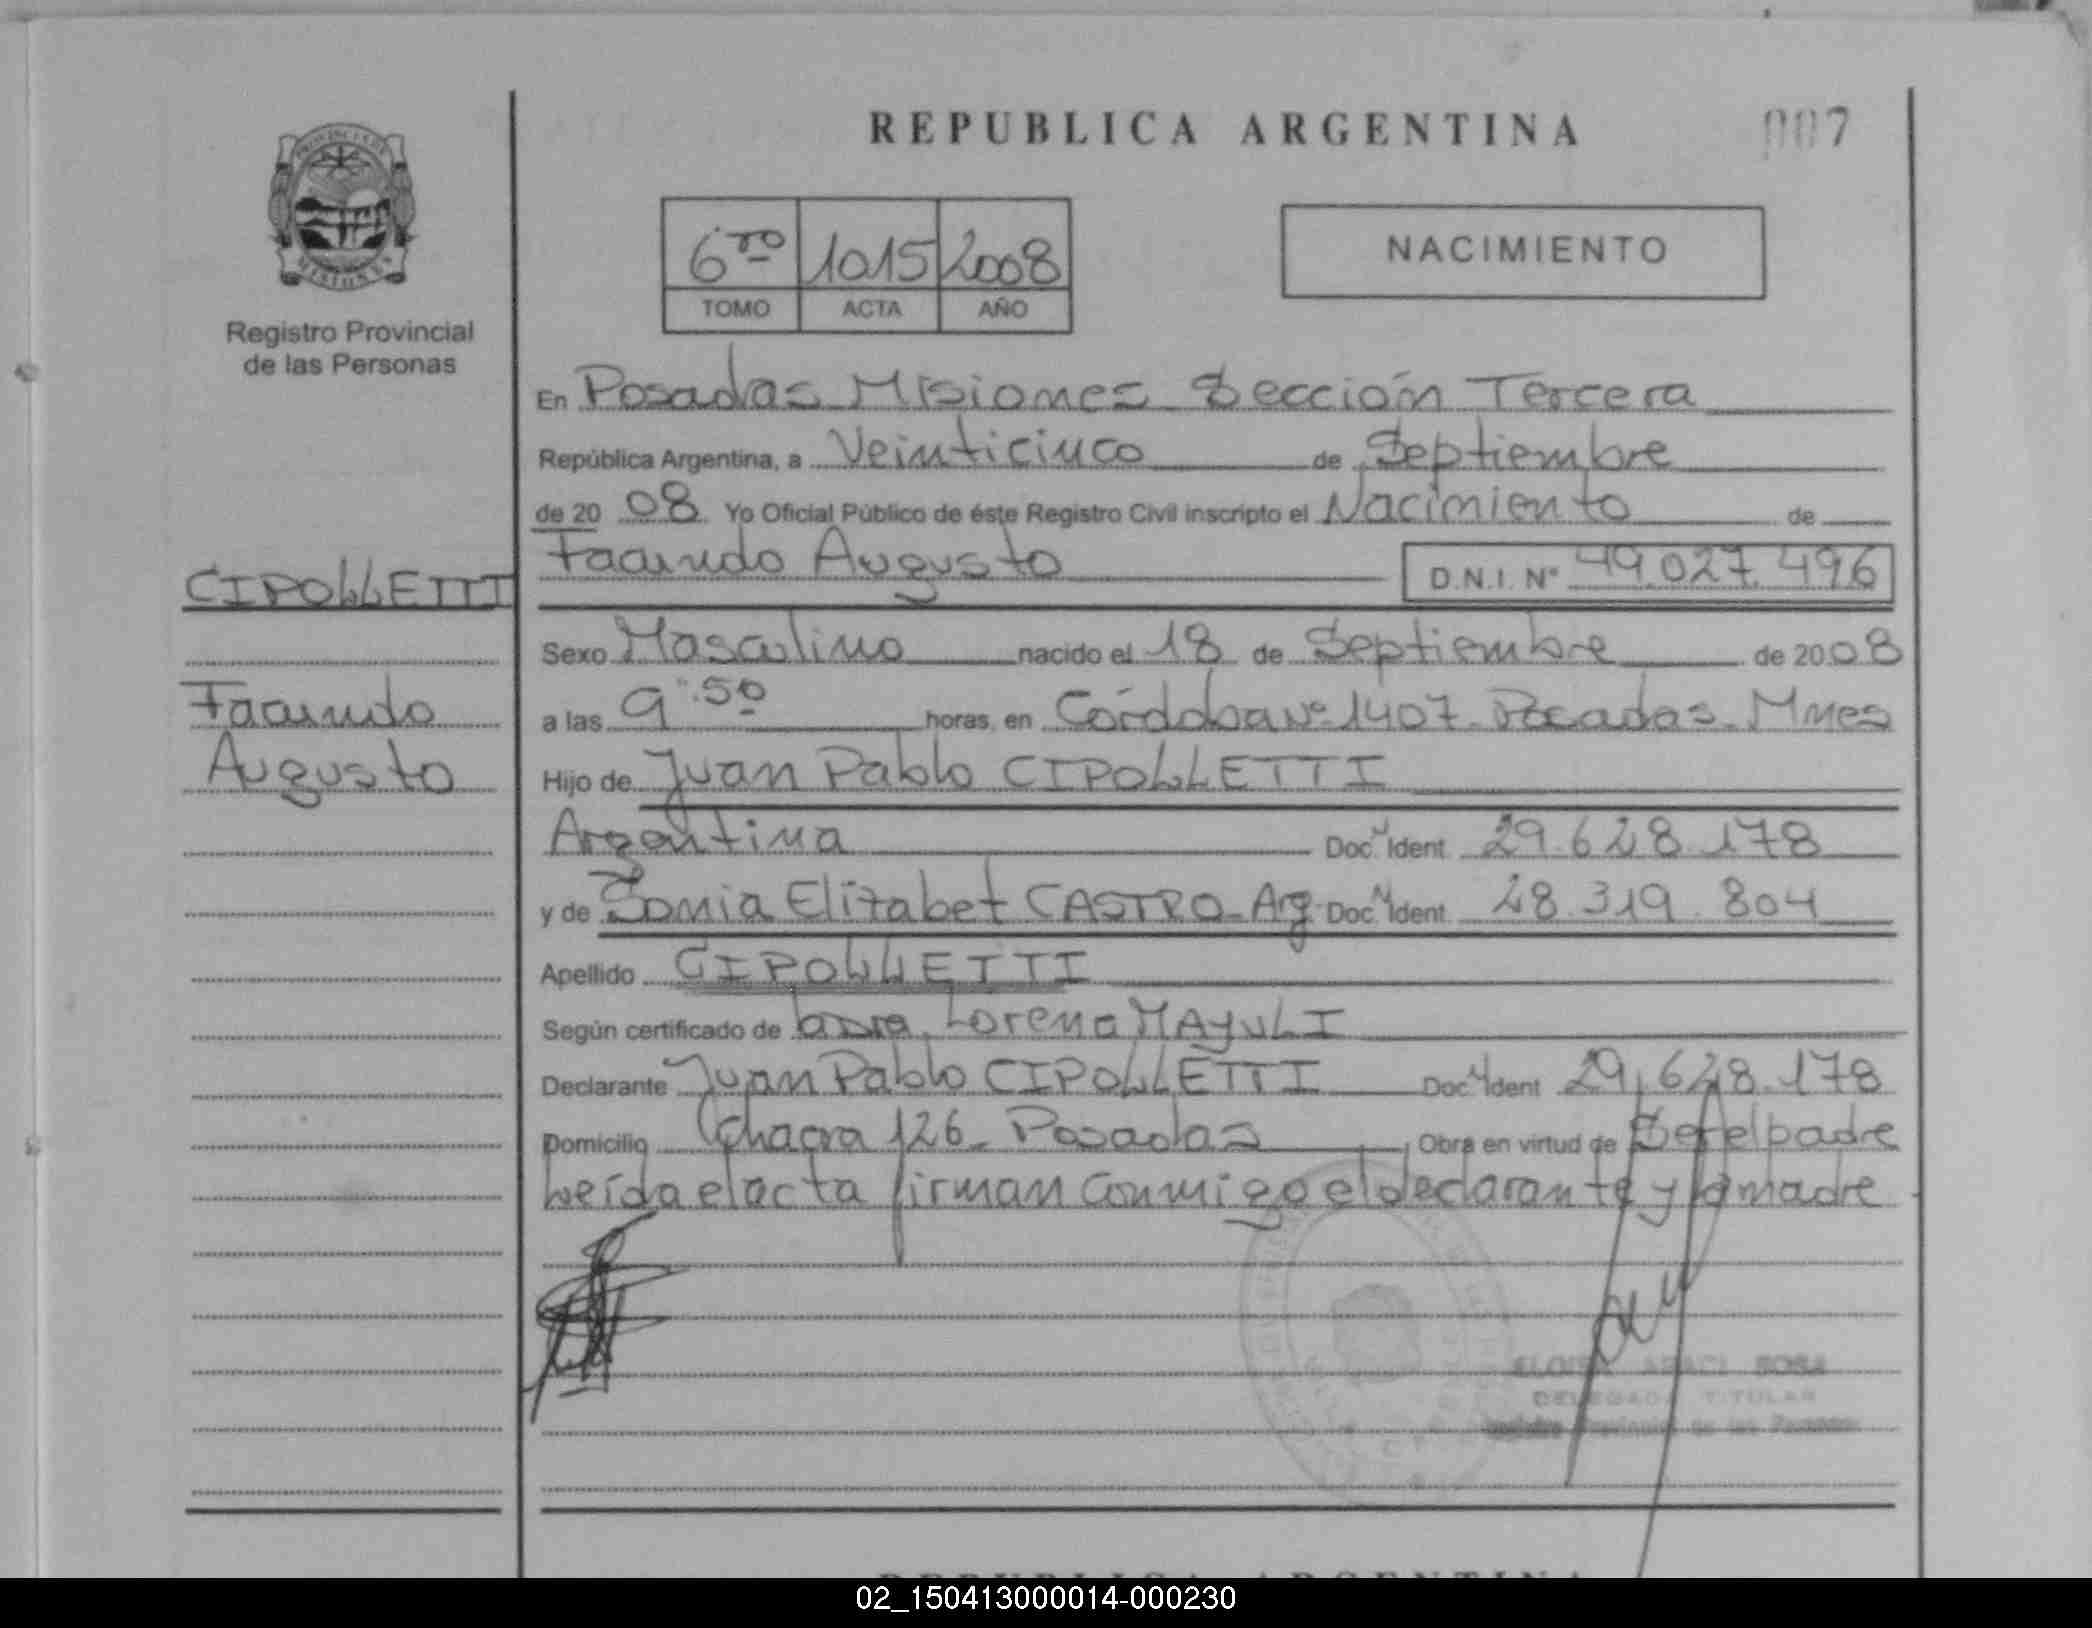 REPUBLICA ARGENTINA
007
6ro 1015 2008
TOMO ACTA AÑO
NACIMIENTO
Registro Provincial
de las Personas
En Posadas Misiones Sección Tercera
República Argentina, a Veinticinco de Septiembre
de 20 08 Yo Oficial Público de éste Registro Civil inscripto el Nacimiento de
Facundo Augusto D.N.I. Nº 49.027.496
CIPOLLETTI
Facundo
Augusto
Sexo Masculino nacido el 18 de Septiembre de 20 08
a las 9:50 horas, en Córdoba Nº 1407. Posadas. Mnes
Hijo de Juan Pablo CIPOLLETTI
Argentina Doc. Ident. 29.628.178
y de Sonia Elizabet CASTRO - Arg. Doc. Ident. 28.319.804
Apellido CIPOLLETTI
Según certificado de Lorena MAYULI
Declarante Juan Pablo CIPOLLETTI Doc. Ident 29.628.178
Domicilio Chacra 126 - Posadas Obra en virtud de Ser el padre
Leída el acta firman conmigo el declarante y la madre
SOSA
DELEGADA TITULAR
Registro Provincial de las Personas
REPUBLICA ARGENTINA
02_150413000014-000230